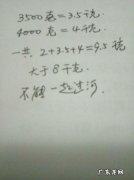 3500克=3.5千克
4000克=4千克
一共 2+3.5+4=9.5千克
大于8千克
不能一起过河
广东牙网